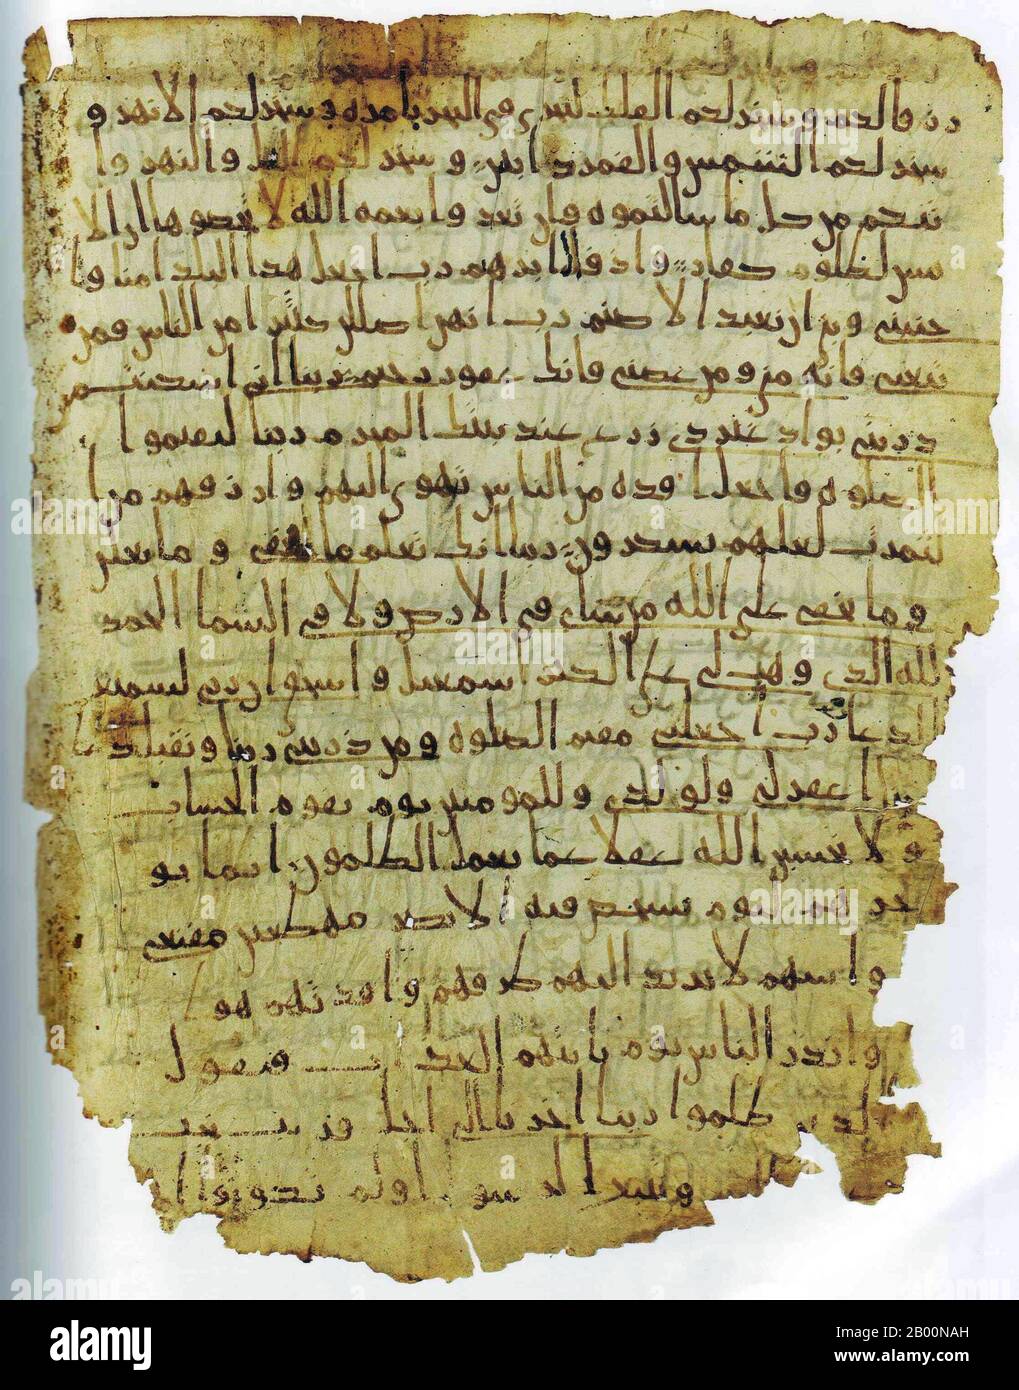 رزقا لكم وسخر لكم الفلك لتجري في البحر بامره وسخر لكم الانهر و
سخر لكم الشمس والقمر دايبين وسخر لكم اليل والنهر وا
تيكم من كل ما سالتموه وان تعدوا نعمه الله لا تحصوها ان الا
نسن لظلوم كفار واذ قال ابرهيم رب اجعل هذا البلد امنا وا
جنبني وبني ان نعبد الاصنم رب انهن اضللن كثيرا من الناس فمن
تبعني فانه مني ومن عصني فانك غفور رحيم ربنا اني اسكنت من
ذريتي بواد غير ذي زرع عند بيتك المحرم ربنا ليقيموا ا
لصلوه فاجعل افده من الناس تهوي اليهم وارزقهم من ا
لثمرت لعلهم يشكرون ربنا انك تعلم ما نخفي وما نعلن
وما يخفى على الله من شاي في الارض ولا في السما الحمد
لله الذي وهب لي على الكبر اسمعيل واسحق ان ربي لسميع
الدعا رب اجعلني مقيم الصلوه ومن ذريتي ربنا وتقبل د
ربنا اغفر لي ولولدي وللمومنين يوم يقوم الحساب
ولا تحسبن الله غفلا عما يعمل الظلمون انما يو
خرهم ليوم تشخص فيه الابصر مهطعين مقنعي
روسهم لا يرتد اليهم طرفهم وافدتهم هو
وانذر الناس يوم ياتيهم العذاب فيقول
الذين ظلموا ربنا اخرنا الى اجل قريب نجب
ونتبع الرسل اولم تكونوا
alamy
Image ID: 2B00NAH
www.alamy.com